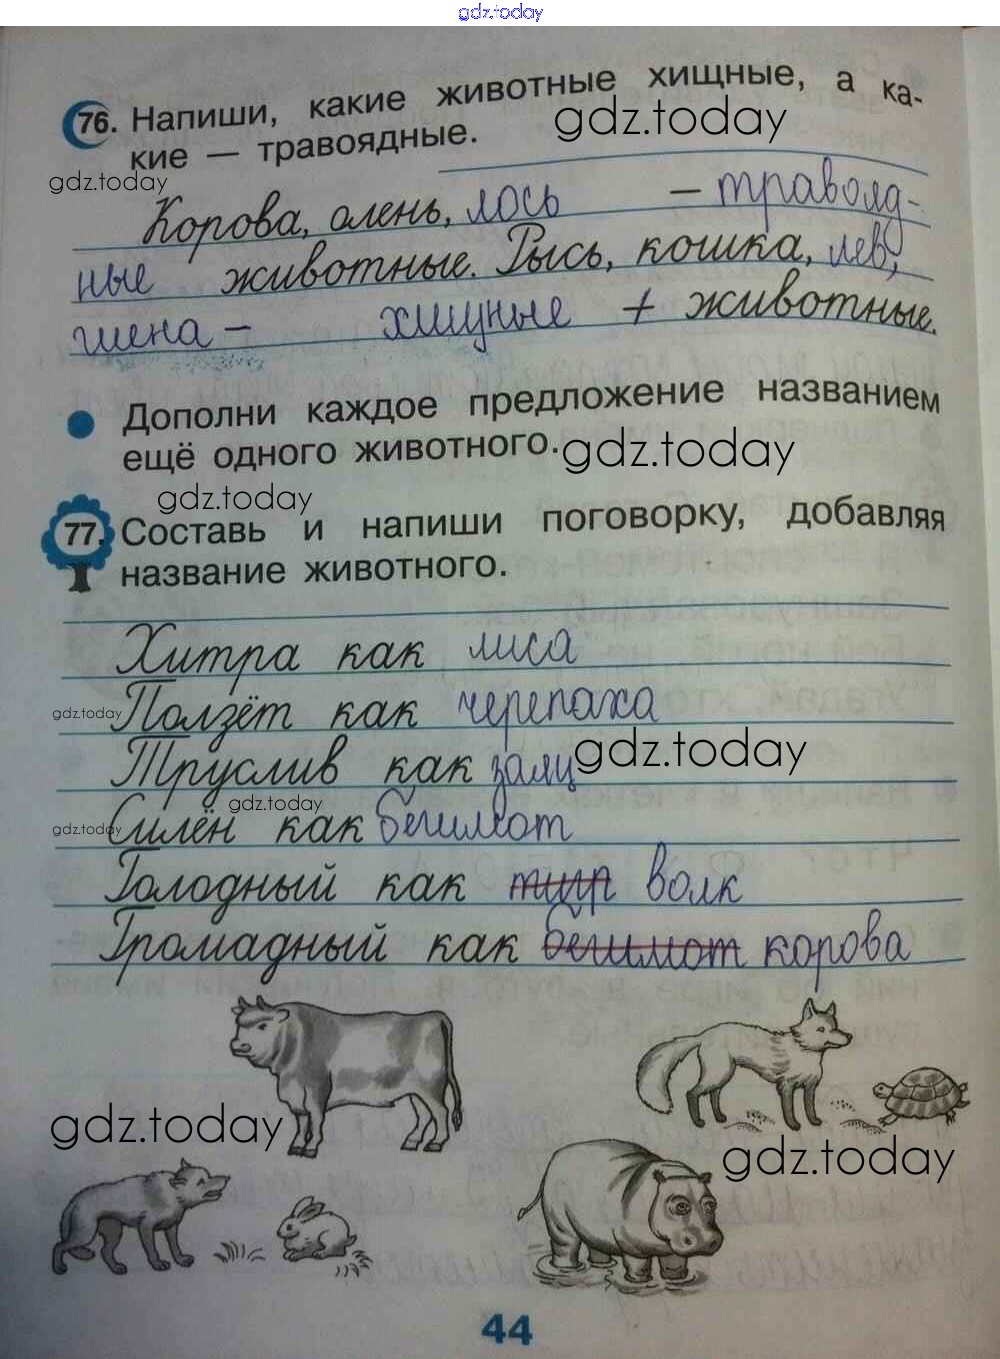 gdz.today
76. Напиши, какие животные хищные, а ка-
gdz.today
кие — травоядные.
gdz.today
Корова, олень, лось — травояд-
ные животные. Рысь, кошка, лев,
гиена — хищные + животные.
Дополни каждое предложение названием
ещё одного животного.
gdz.today
gdz.today
77. Составь и напиши поговорку, добавляя
название животного.
Хитра как лиса
gdz.today
Ползёт как черепаха
Труслив как заяц
gdz.today
gdz.today
gdz.today
Силён как бегимот
Голодный как тигр волк
Громадный как бегимот корова
gdz.today
gdz.today
44